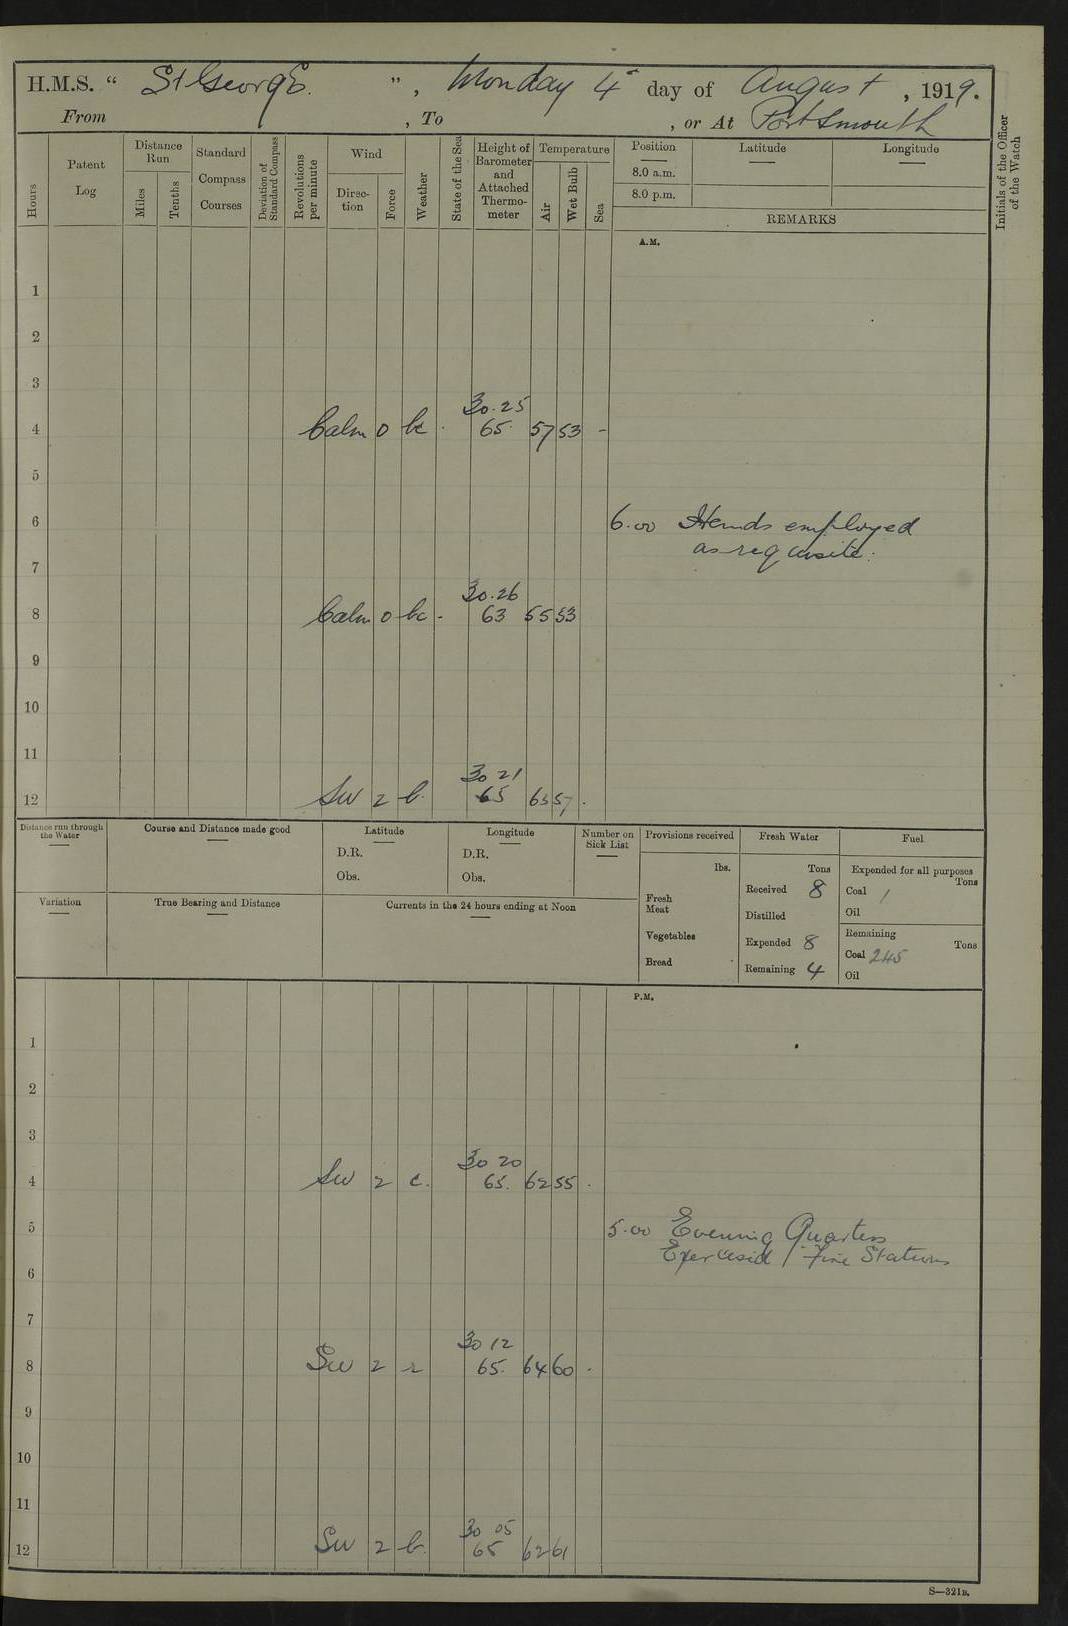 H.M.S. “ St George. ”, Monday 4th day of August, 1919.
From , To , or At Portsmouth
Hours
Patent Log
Distance Run
Miles
Tenths
Standard Compass Courses
Deviation of Standard Compass
Revolutions per minute
Wind
Direc-tion
Force
Weather
State of the Sea
Height of Barometer and Attached Thermo-meter
Temperature
Air
Wet Bulb
Sea
Position
8.0 a.m.
8.0 p.m.
Latitude
Longitude
REMARKS
Initials of the Officer of the Watch
A.M.
1
2
3
30.25
4 Calm 0 bc . 65 57 53 -
5
6 6.00 Hands employed
as requisite.
7
30.26
8 Calm 0 bc - 63 55 53
9
10
11
30 21
12 SW 2 b. 65 63 57 .
Distance run through the Water
Course and Distance made good
Latitude
D.R.
Obs.
Longitude
D.R.
Obs.
Number on Sick List
Provisions received
lbs.
Fresh Meat
Vegetables
Bread
Fresh Water
Tons
Received 8
Distilled
Expended 8
Remaining 4
Fuel
Expended for all purposes
Tons
Coal 1
Oil
Remaining
Tons
Coal 245
Oil
Variation
True Bearing and Distance
Currents in the 24 hours ending at Noon
P.M.
1
2
3
30 20
4 SW 2 c. 65. 62 55 .
5 5.00 Evening Quarters
Exercised Fire Stations
6
7
30 12
8 SW 2 r 65. 64 60 .
9
10
11
30 05
12 SW 2 b. 65 62 61
S—321B.